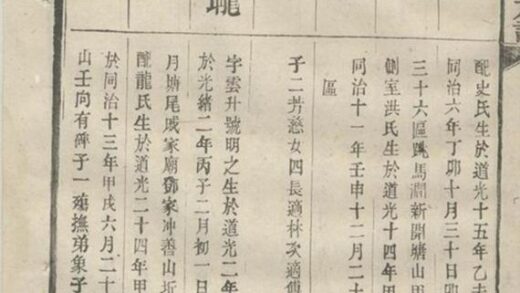 配史氏生於道光十五年乙未
同治六年丁卯十月三十日卯
三十六區跑馬澗新開塘山甲
側室洪氏生於道光十四年甲
同治十一年壬申十二月二十
區
子二芳慈女四長適林次適傅
字雲升號明之生於道光二年
於光緒二年丙子二月初一日
月塘尾戚家廟鄧家冲善山圻
配龍氏生於道光二十四年甲
於同治十三年甲戌六月二十
山壬向有碑子一殤撫弟象子